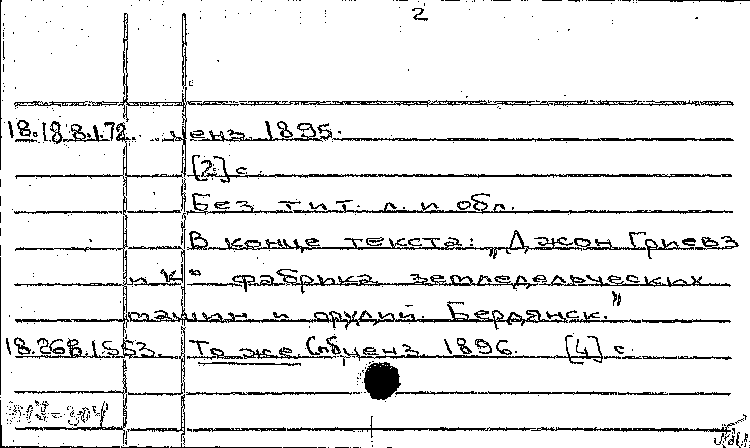 2
18.188.1.72. ценз 1895.
[2] с.
Без тит. л. и обл.
В конце текста: „Джон Гриевз
и К° фабрика земледельческих
машин и орудий. Бердянск.”
18.268.1.553. То же. ценз. 1896. [4] с.